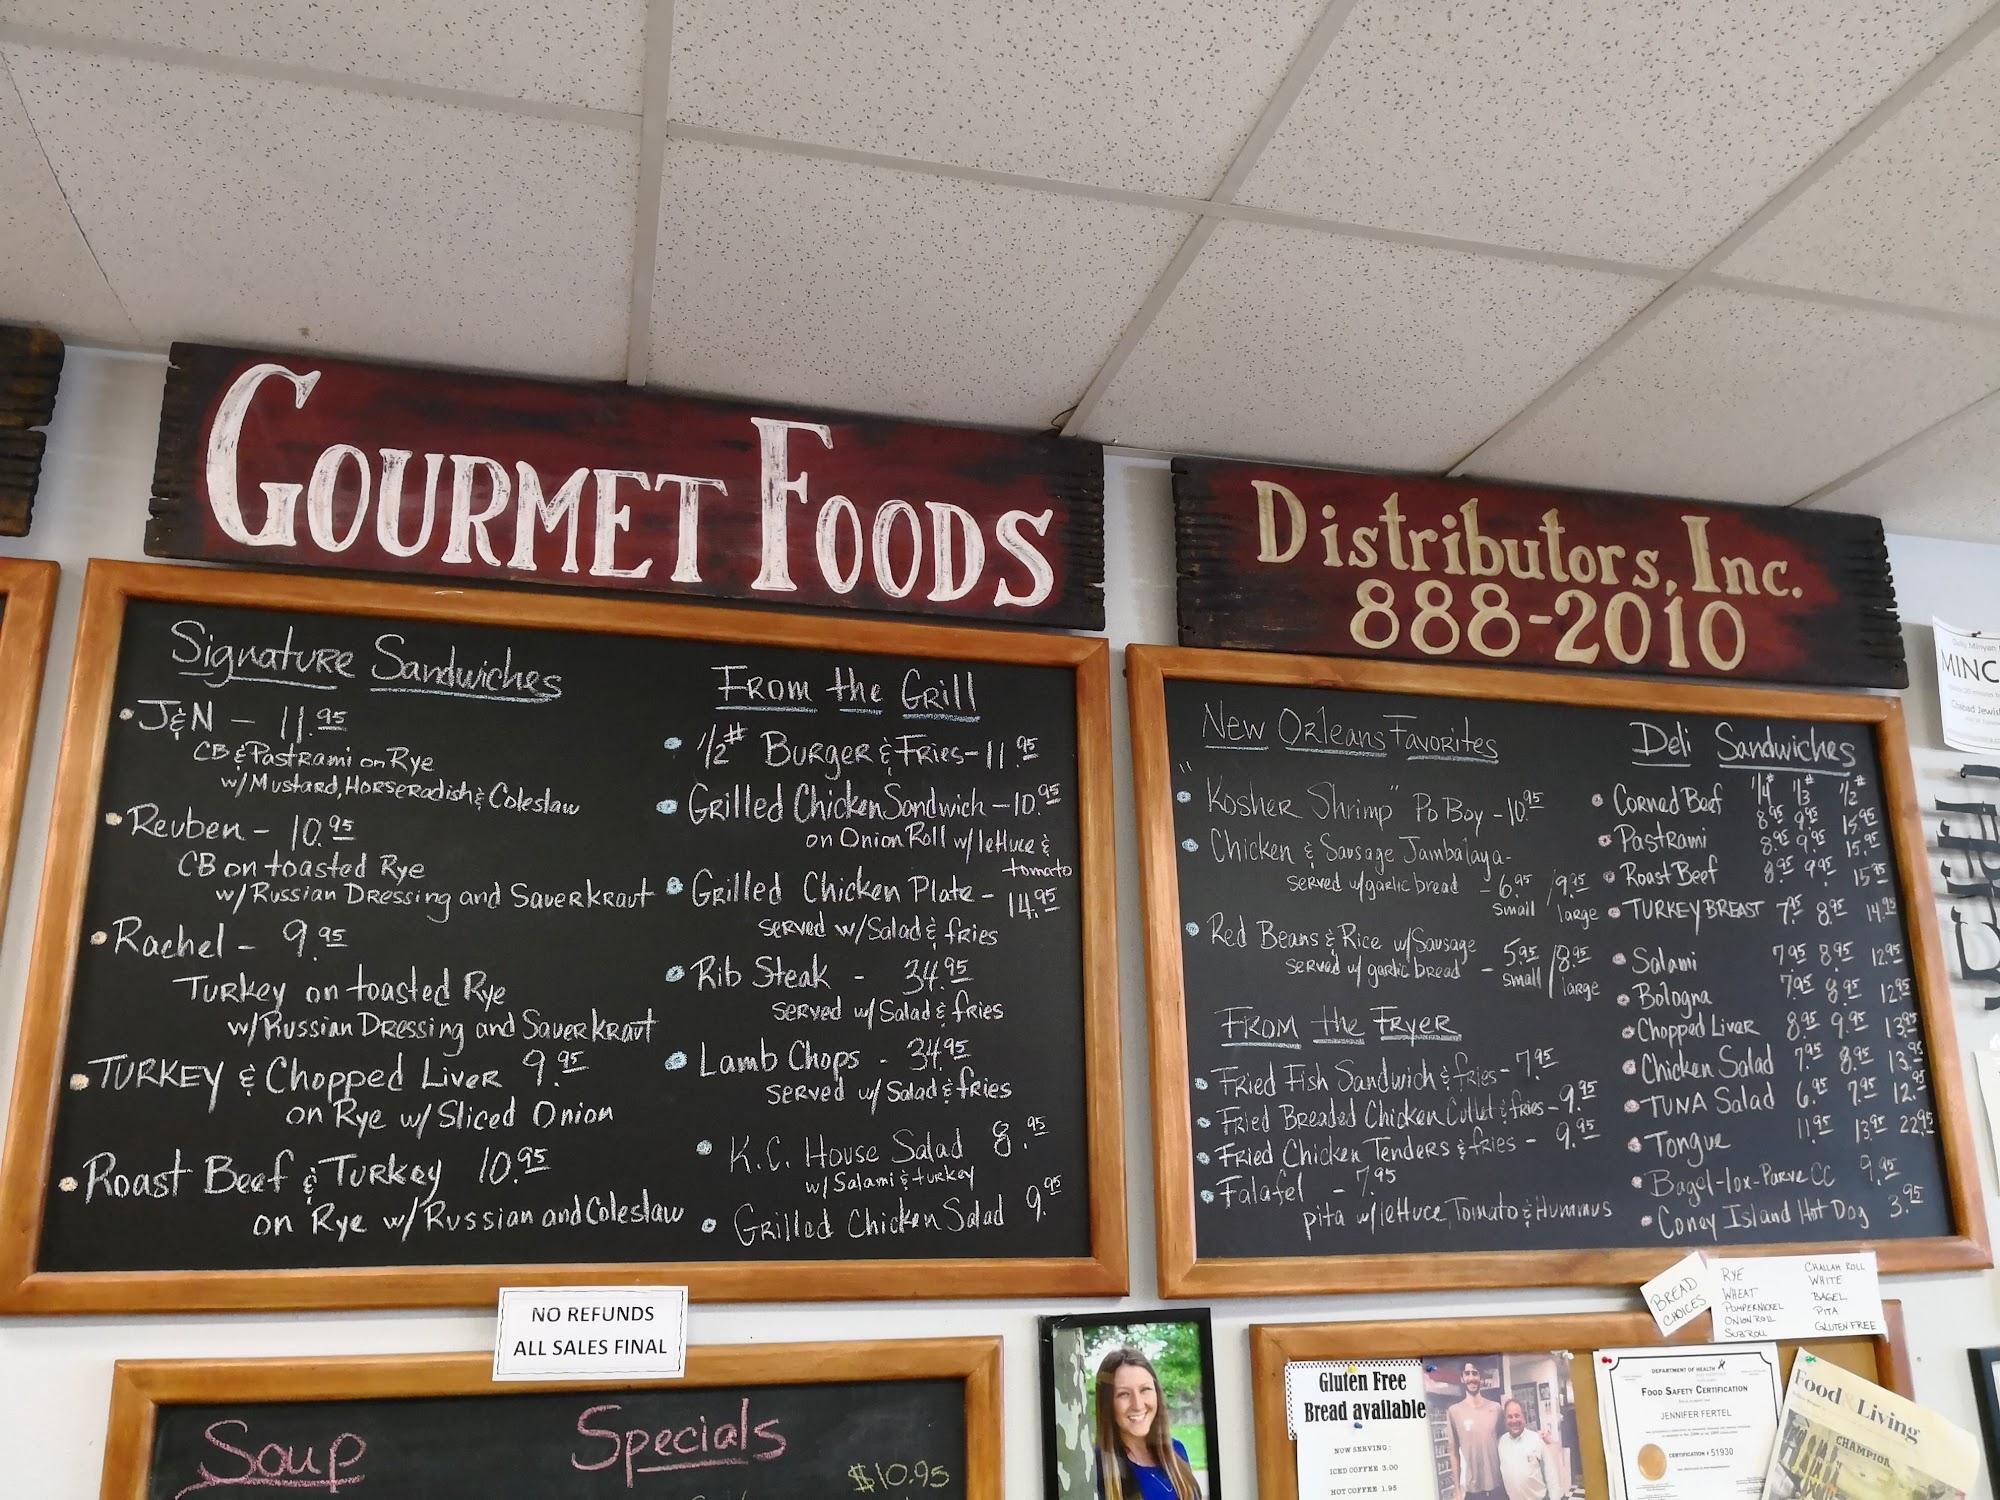 GOURMET FOODS
Distributors, Inc.
888-2010
Signature Sandwiches
J&N - 11.95
CB & Pastrami on Rye
w/ Mustard, Horseradish & Coleslaw
Reuben - 10.95
CB on toasted Rye
w/ Russian Dressing and Sauerkraut
Rachel - 9.95
Turkey on toasted Rye
w/ Russian Dressing and Sauerkraut
Turkey & Chopped Liver 9.95
on Rye w/ Sliced Onion
Roast Beef & Turkey 10.95
on Rye w/ Russian and Coleslaw
From the Grill
1/2# Burger & Fries - 11.95
Grilled Chicken Sandwich - 10.95
on Onion Roll w/ lettuce &
tomato
Grilled Chicken Plate - 14.95
served w/ Salad & fries
Rib Steak - 34.95
served w/ Salad & fries
Lamb Chops - 34.95
served w/ Salad & fries
K.C. House Salad 8.95
w/ Salami & turkey
Grilled Chicken Salad 9.95
New Orleans Favorites
"Kosher Shrimp" Po Boy - 10.95
Chicken & Sausage Jambalaya -
served w/ garlic bread - 6.95 / 9.95
small / large
Red Beans & Rice w/ Sausage
served w/ garlic bread - 5.95 / 8.95
small / large
From the Fryer
Fried Fish Sandwich & fries - 7.95
Fried Breaded Chicken Cutlet & fries - 9.95
Fried Chicken Tenders & fries - 9.95
Falafel - 7.95
pita w/ lettuce, Tomato & Hummus
Deli Sandwiches
1/4# 1/3 1/2#
Corned Beef 8.95 9.95 15.95
Pastrami 8.95 9.95 15.95
Roast Beef 8.95 9.95 15.95
Turkey Breast 7.95 8.95 14.95
Salami 7.95 8.95 12.95
Bologna 7.95 8.95 12.95
Chopped Liver 8.95 9.95 13.95
Chicken Salad 7.95 8.95 13.95
Tuna Salad 6.95 7.95 12.95
Tongue 11.95 13.95 22.95
Bagel-lox-Parve CC 9.95
Coney Island Hot Dog 3.95
NO REFUNDS
ALL SALES FINAL
Soup
Specials
$10.95
BREAD
CHOICES
RYE
WHEAT
PUMPERNICKEL
ONION ROLL
SUB ROLL
CHALLAH ROLL
WHITE
BAGEL
PITA
GLUTEN FREE
Gluten Free
Bread available
NOW SERVING:
ICED COFFEE 3.00
HOT COFFEE 1.95
DEPARTMENT OF HEALTH
FOOD SAFETY CERTIFICATION
JENNIFER FERTEL
CERTIFICATION # 51930
Food & Living
CHAMPION
Daily Minyan
MINC
Chabad Jewish